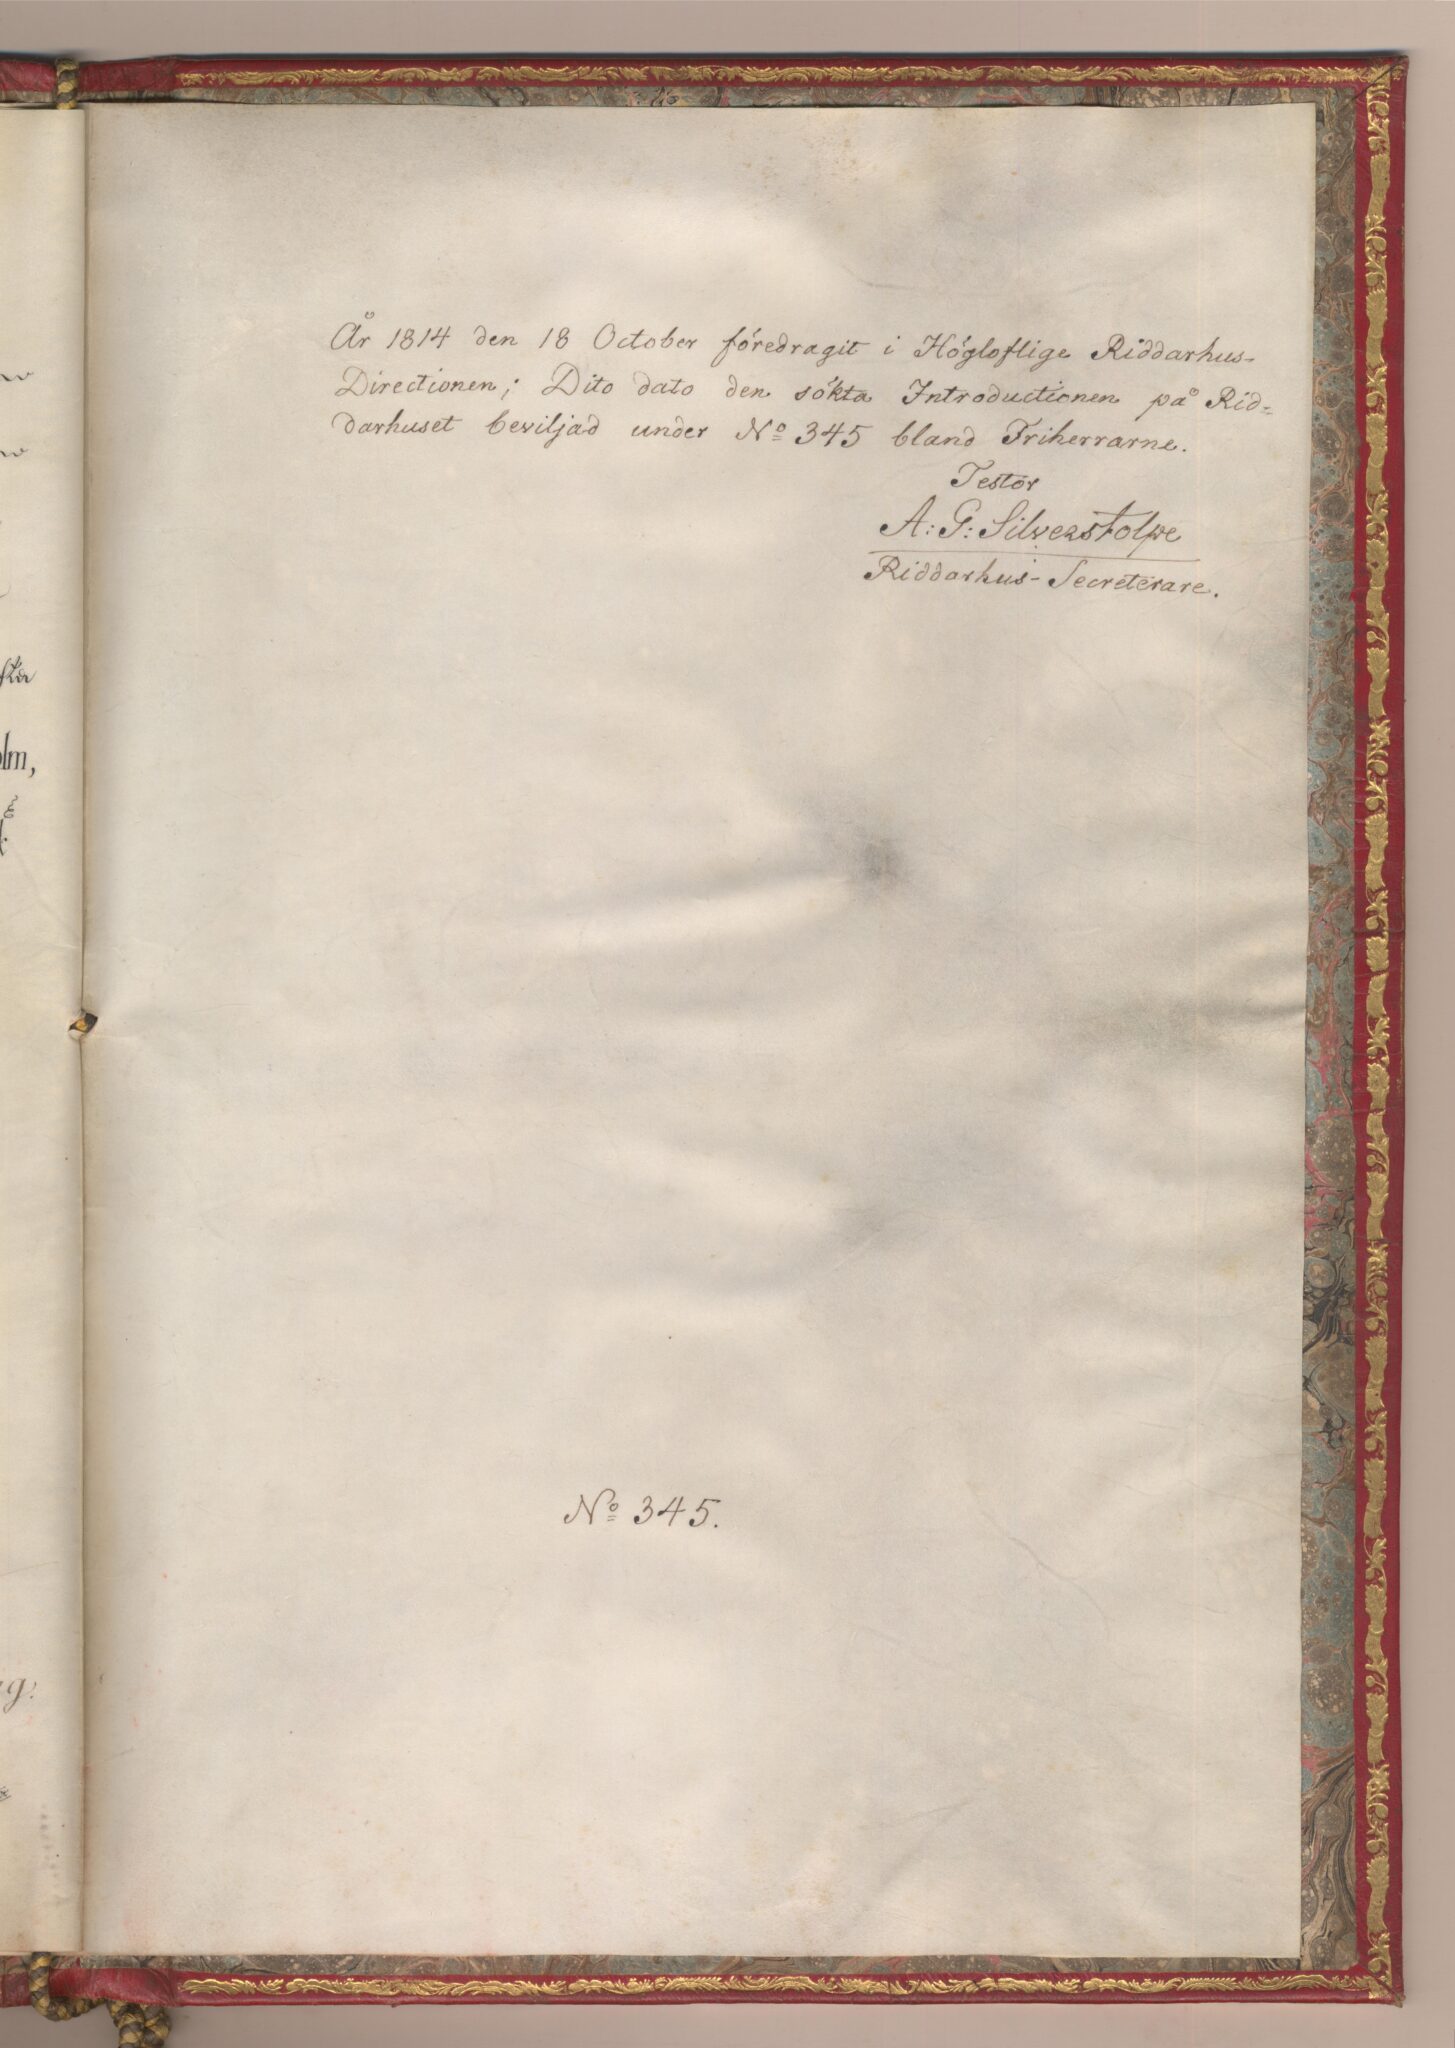 År 1814 den 18 October föredragit i Högloflige Riddarhus-
Directionen; Dito dato den sökta Introductionen på Rid=
darhuset beviljad under No 345 bland Friherrarne.
Testor
A: G: Silverstolpe
Riddarhus-Secreterare.
No 345.
olm,